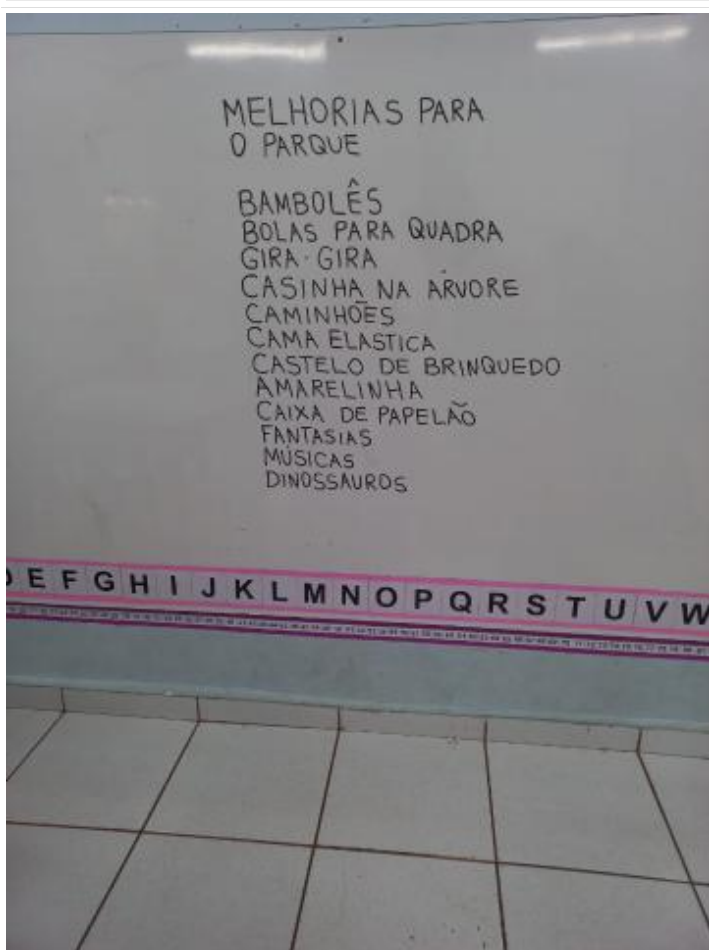 MELHORIAS PARA
O PARQUE
BAMBOLÊS
BOLAS PARA QUADRA
GIRA-GIRA
CASINHA NA ÁRVORE
CAMINHÕES
CAMA ELASTICA
CASTELO DE BRINQUEDO
AMARELINHA
CAIXA DE PAPELÃO
FANTASIAS
MÚSICAS
DINOSSAUROS
E F G H I J K L M N O P Q R S T U V W